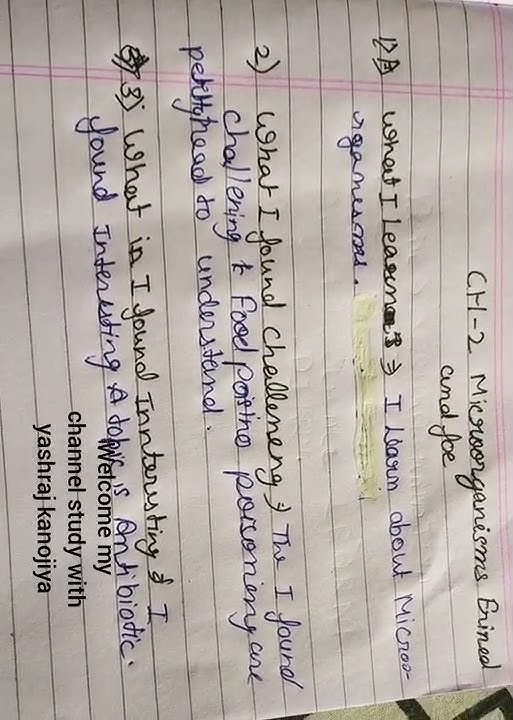 CH-2 Microorganisms Brined
and foe
1) What I learn ⇒ I learn about Micro-
rganesms.
2) What I found challeneng ⇒ The I found
challening t Food poistino poisonieng are
head to understand.
3) What in I found Innteristing ⇒ I
found Interesting A topic is Antibiotic.
Welcome my
channel study with
yashraj kanojiya